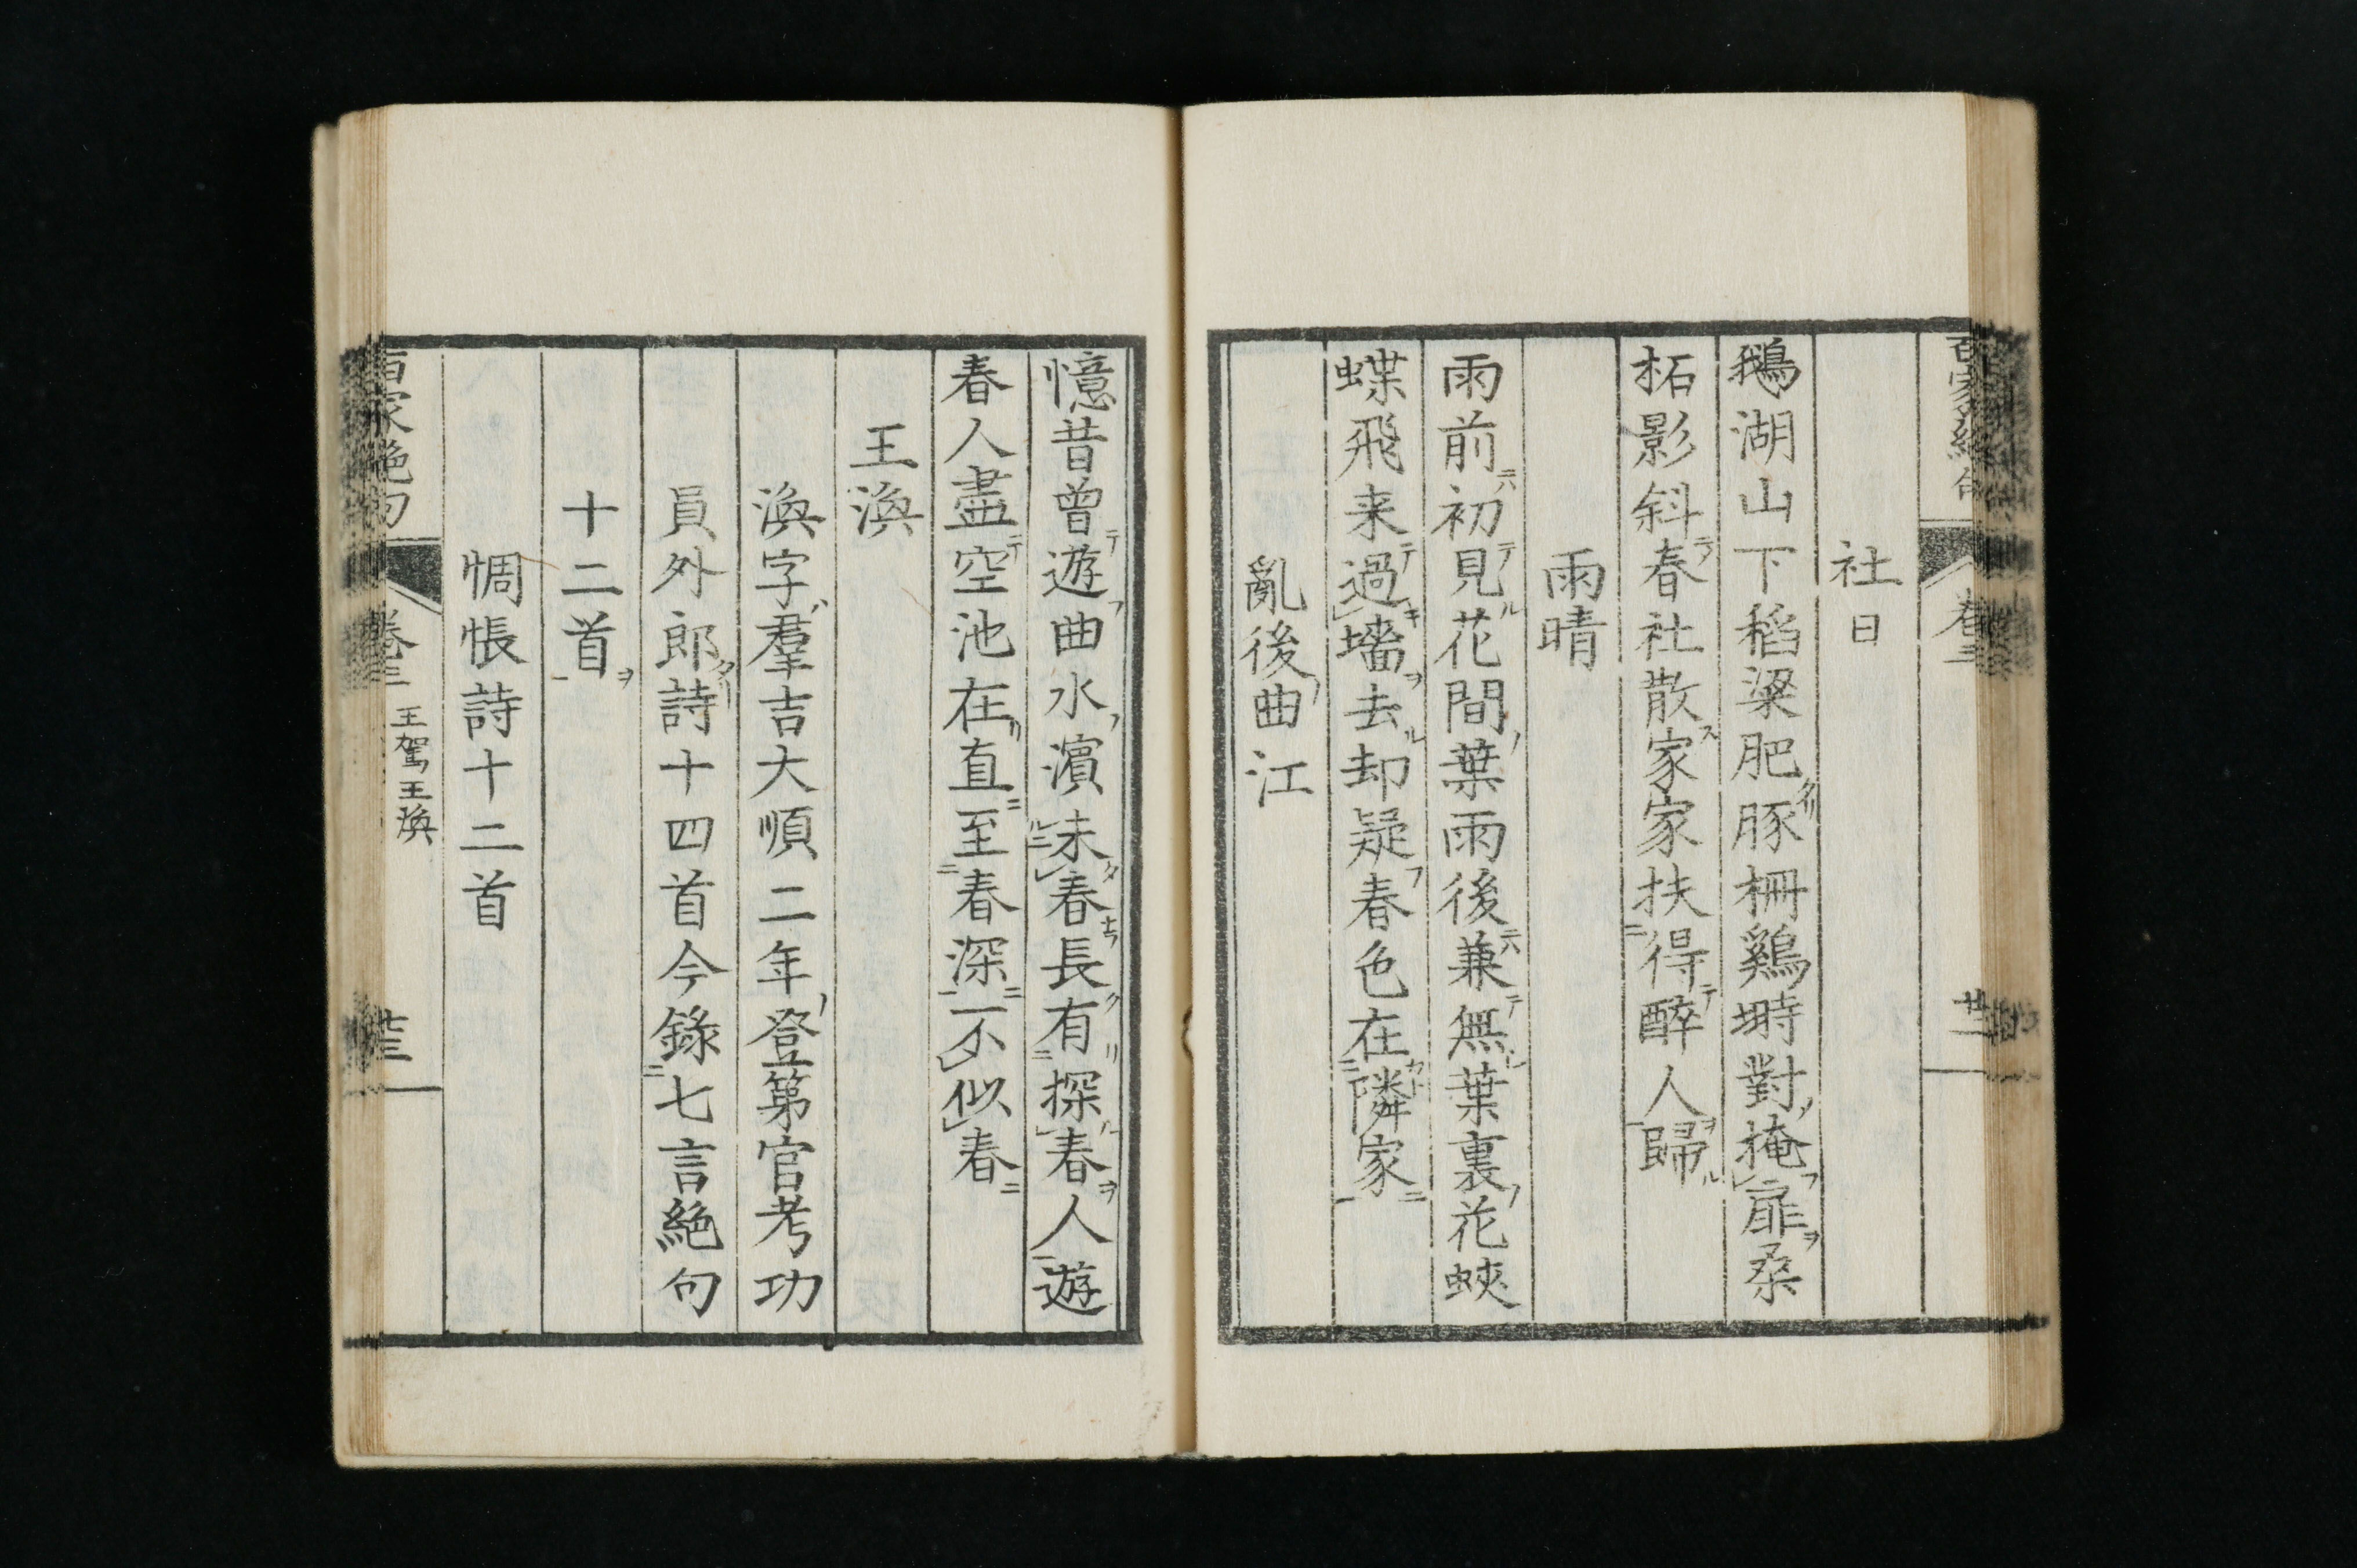 百家絶句
卷三
社日
鵝湖山下稻粱肥豚柵鷄塒對掩扉桑
柘影斜春社散家家扶得醉人歸
雨晴
雨前初見花間葉雨後兼無葉裏花蛺
蝶飛来過墻去却疑春色在隣家
亂後曲江
憶昔曾遊曲水濱未春長有探春人遊
春人盡空池在直至春深不似春
王渙
渙字羣吉大順二年登第官考功
員外郎詩十四首今錄七言絶句
十二首
惆悵詩十二首
百家絶句
卷三
王駕王渙
廿三